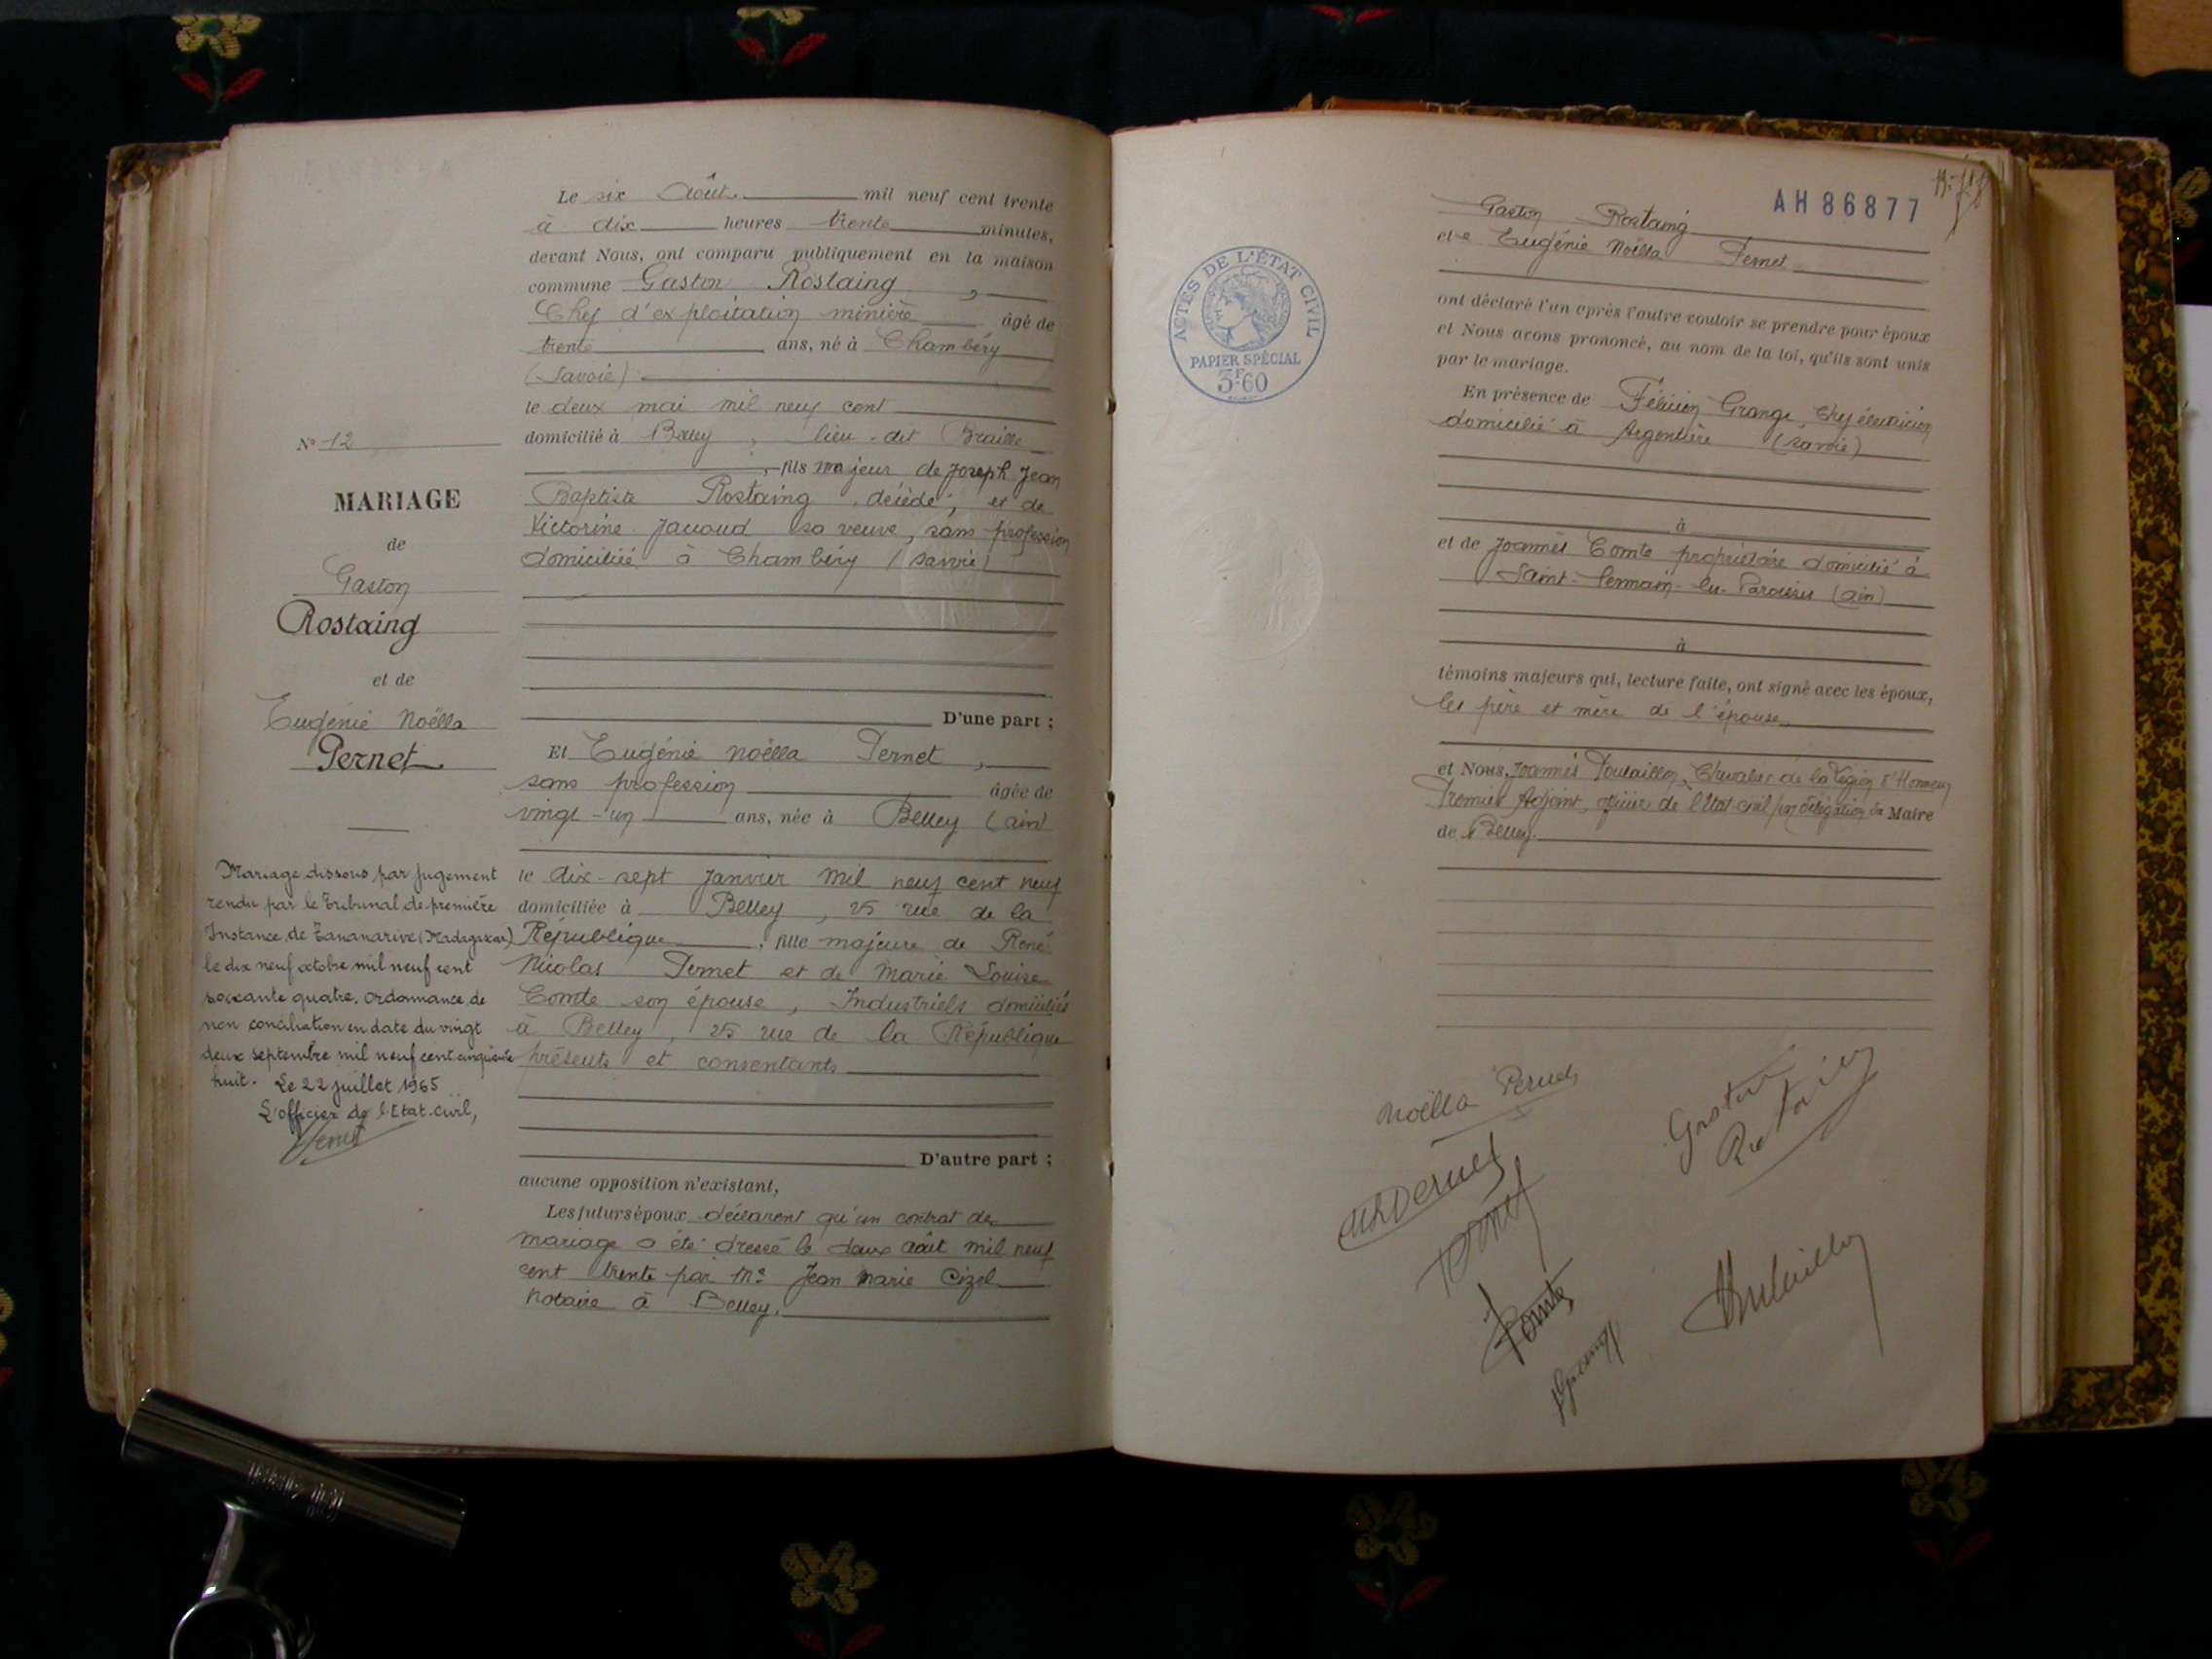 Le six Août mil neuf cent trente
à dix heures trente minutes,
devant Nous, ont comparu publiquement en la maison
commune Gaston Rostaing,
Chef d'exploitation minière âgé de
trente ans, né à Chambéry
(Savoie)
le deux mai mil neuf cent
domicilié à Belley, lieu-dit Braille
, fils majeur de Joseph Jean
Baptiste Rostaing, décédé, et de
Victorine Jacoud sa veuve, sans profession
domiciliée à Chambéry (Savoie)
D'une part ;
Et Eugénie Noëlla Pernet,
sans profession âgée de
vingt-un ans, née à Belley (ain)
le dix-sept Janvier mil neuf cent neuf
domiciliée à Belley, 25 rue de la
République, fille majeure de René
Nicolas Pernet et de Marie Louise
Comte son épouse, Industriels domiciliés
à Belley, 25 rue de la République
présents et consentants
D'autre part ;
aucune opposition n'existant,
Les futurs époux déclarent qu'un contrat de
mariage a été dressé le deux août mil neuf
cent trente par Me Jean Marie Cizel
notaire à Belley.
No 12
MARIAGE
de
Gaston
Rostaing
et de
Eugénie Noëlla
Pernet
Mariage dissous par jugement
rendu par le Tribunal de première
Instance de Tananarive (Madagascar)
le dix neuf octobre mil neuf cent
soixante quatre. Ordonnance de
non conciliation en date du vingt
deux septembre mil neuf cent cinquante
huit. Le 22 juillet 1965
L'officier de l'Etat-civil,
AH 86877
ACTES DE L'ÉTAT CIVIL
PAPIER SPÉCIAL
3F60
Gaston Rostaing
et Eugénie Noëlla Pernet
ont déclaré l'un après l'autre vouloir se prendre pour époux
et Nous avons prononcé, au nom de la loi, qu'ils sont unis
par le mariage.
En présence de Félicien Grange, Chef électricien
domicilié à Argentière (Savoie)
à
et de Joannès Comte propriétaire domicilié à
Saint-Germain-les-Paroisses (ain)
à
témoins majeurs qui, lecture faite, ont signé avec les époux,
les père et mère de l'épouse
et Nous, Joannès Poulaillon, Chevalier de la Légion d'Honneur
Premier Adjoint, officier de l'Etat civil par délégation du Maire
de Belley.
Noëlla Pernet
Gaston
Rostaing
Comte